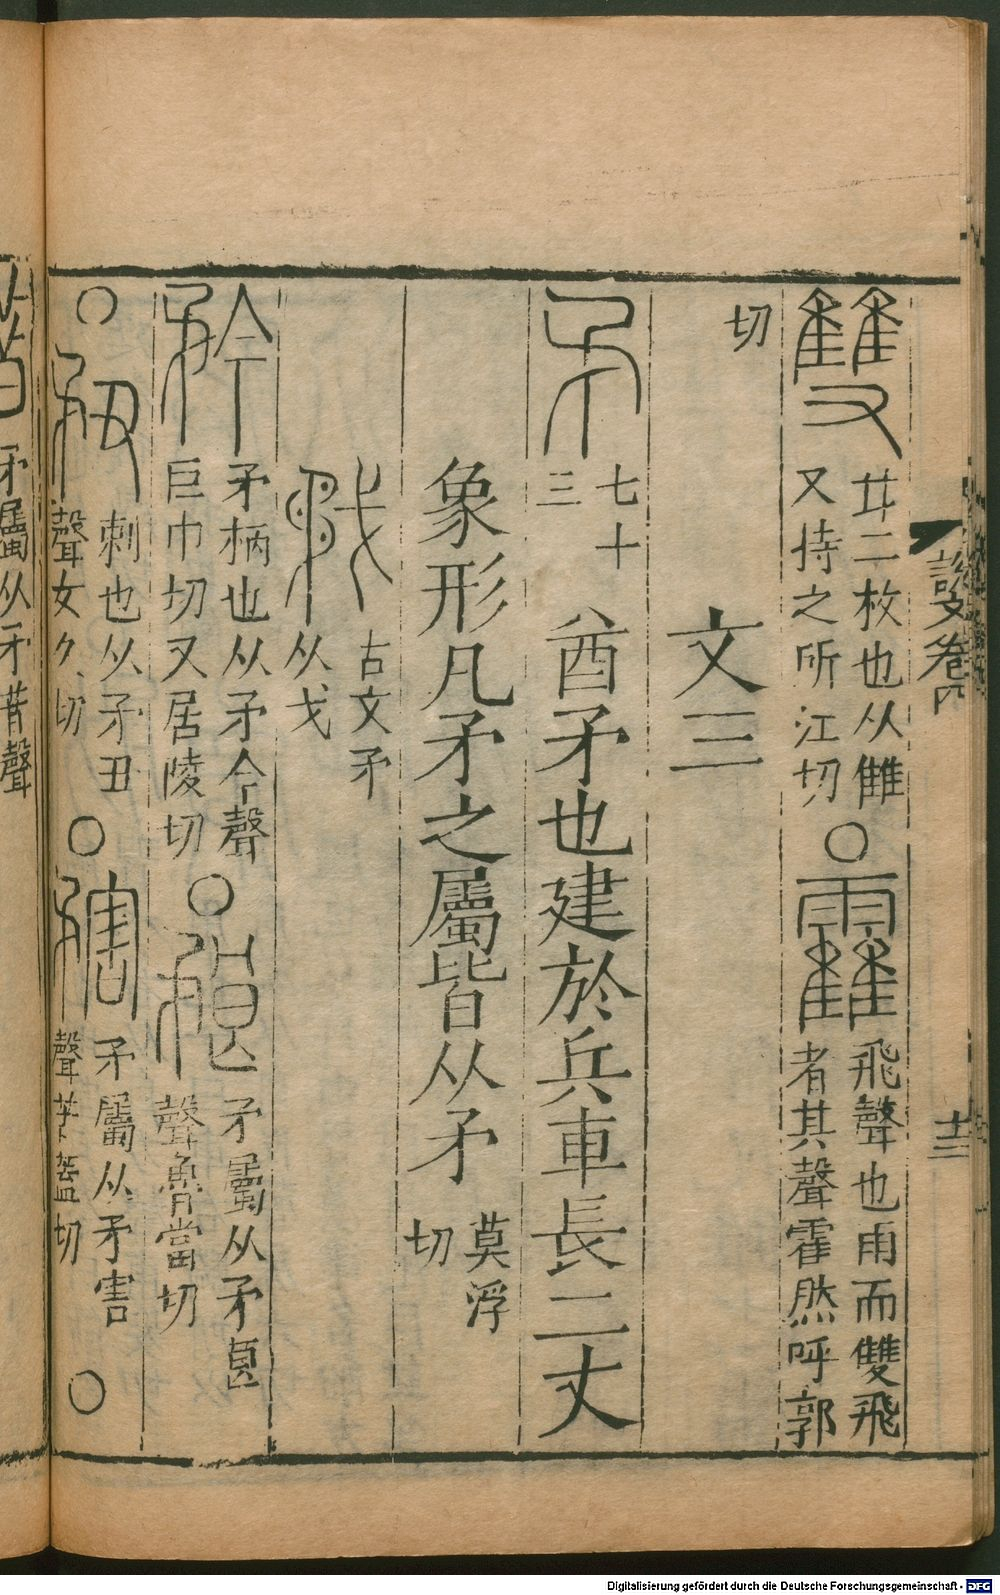 說文卷四
十三
雙
廿二枚也从雔
又持之所江切
○
靃
飛聲也雨而雙飛
者其聲霍然呼郭
切
文三
矛
七十
三
酋矛也建於兵車長二丈
象形凡矛之屬皆从矛
莫浮
切
古文矛
从戈
矜
矛柄也从矛今聲
巨巾切又居陵切
○
矛屬从矛良
聲魯當切
○
刺也从矛丑
聲女久切
○
矛屬从矛害
聲苦蓋切
○
矛屬从矛昔聲